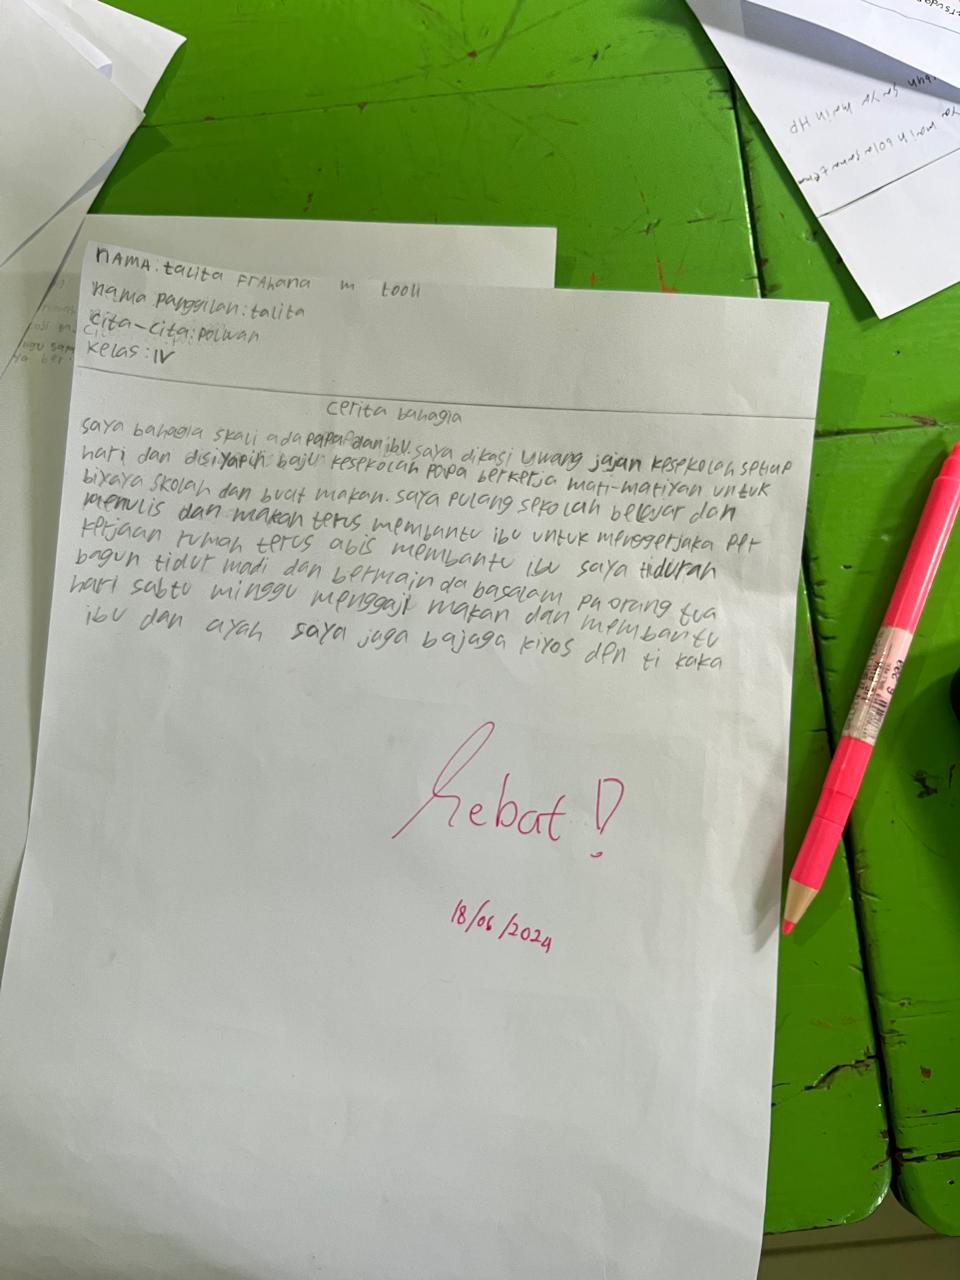 NAMA: talita Frahana m tooli
nama panggilan: talita
cita-cita: polwan
kelas: IV
cerita bahagia
saya bahagia skali ada papa dan ibu. saya dikasi uwang jajan kesekolah setiap
hari dan disiyapin baju kesekolah papa berkerja mati-matiyan untuk
biyaya skolah dan buat makan. saya pulang sekolah belajar dan
menulis dan makan terus membantu ibu untuk menggerjaka per
kerjaan rumah terus abis membantu ibu saya tiduran
bagun tidur madi dan bermain da basalam pa orang tua
hari sabtu minggu menggaji makan dan membantu
ibu dan ayah saya jaga bajaga kiyos den ti kaka
hebat!
18/06/2024
ya main bola sama tema
saya main HP